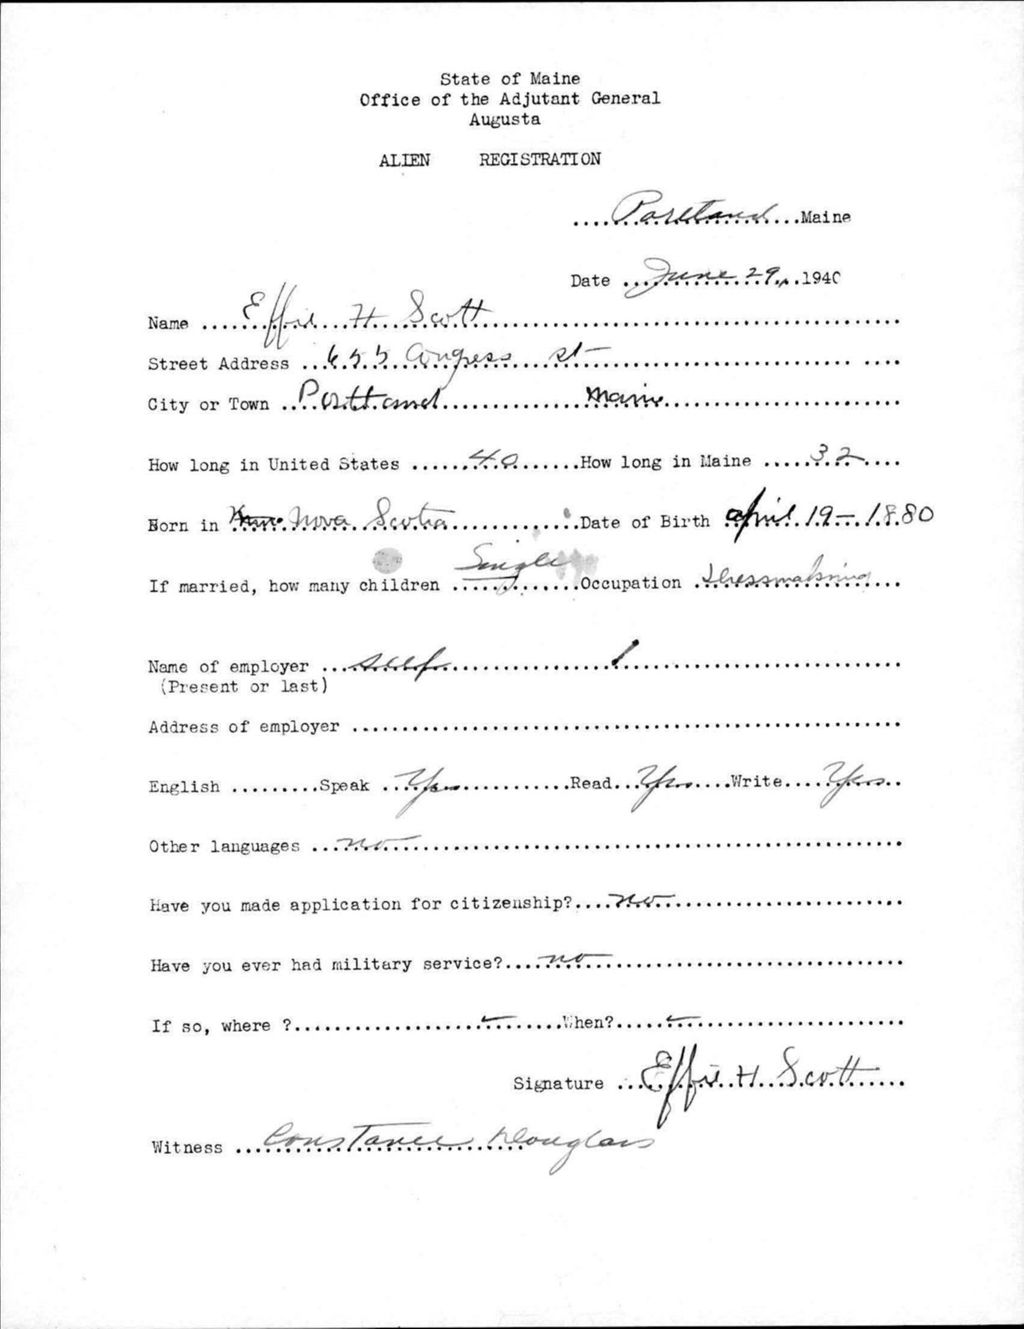 State of Maine
Office of the Adjutant General
Augusta
ALIEN REGISTRATION
....Portland....Maine
Date ...June 29,..1940
Name ...Effie H Scott...
Street Address ...655 Congress st...
City or Town ...Portland...Maine...
How long in United States ...40...How long in Maine ...32...
Born in ...Nova Scotia...Date of Birth april 19-1880
If married, how many children ...Single...Occupation .dressmaking...
Name of employer ...self...
(Present or last)
Address of employer ...
English ...Speak ...Yes...Read...Yes...Write...Yes...
Other languages ...no...
Have you made application for citizenship?...no...
Have you ever had military service?...no...
If so, where ?...When?...
Signature ...Effie H. Scott...
Witness ...Constance Douglass